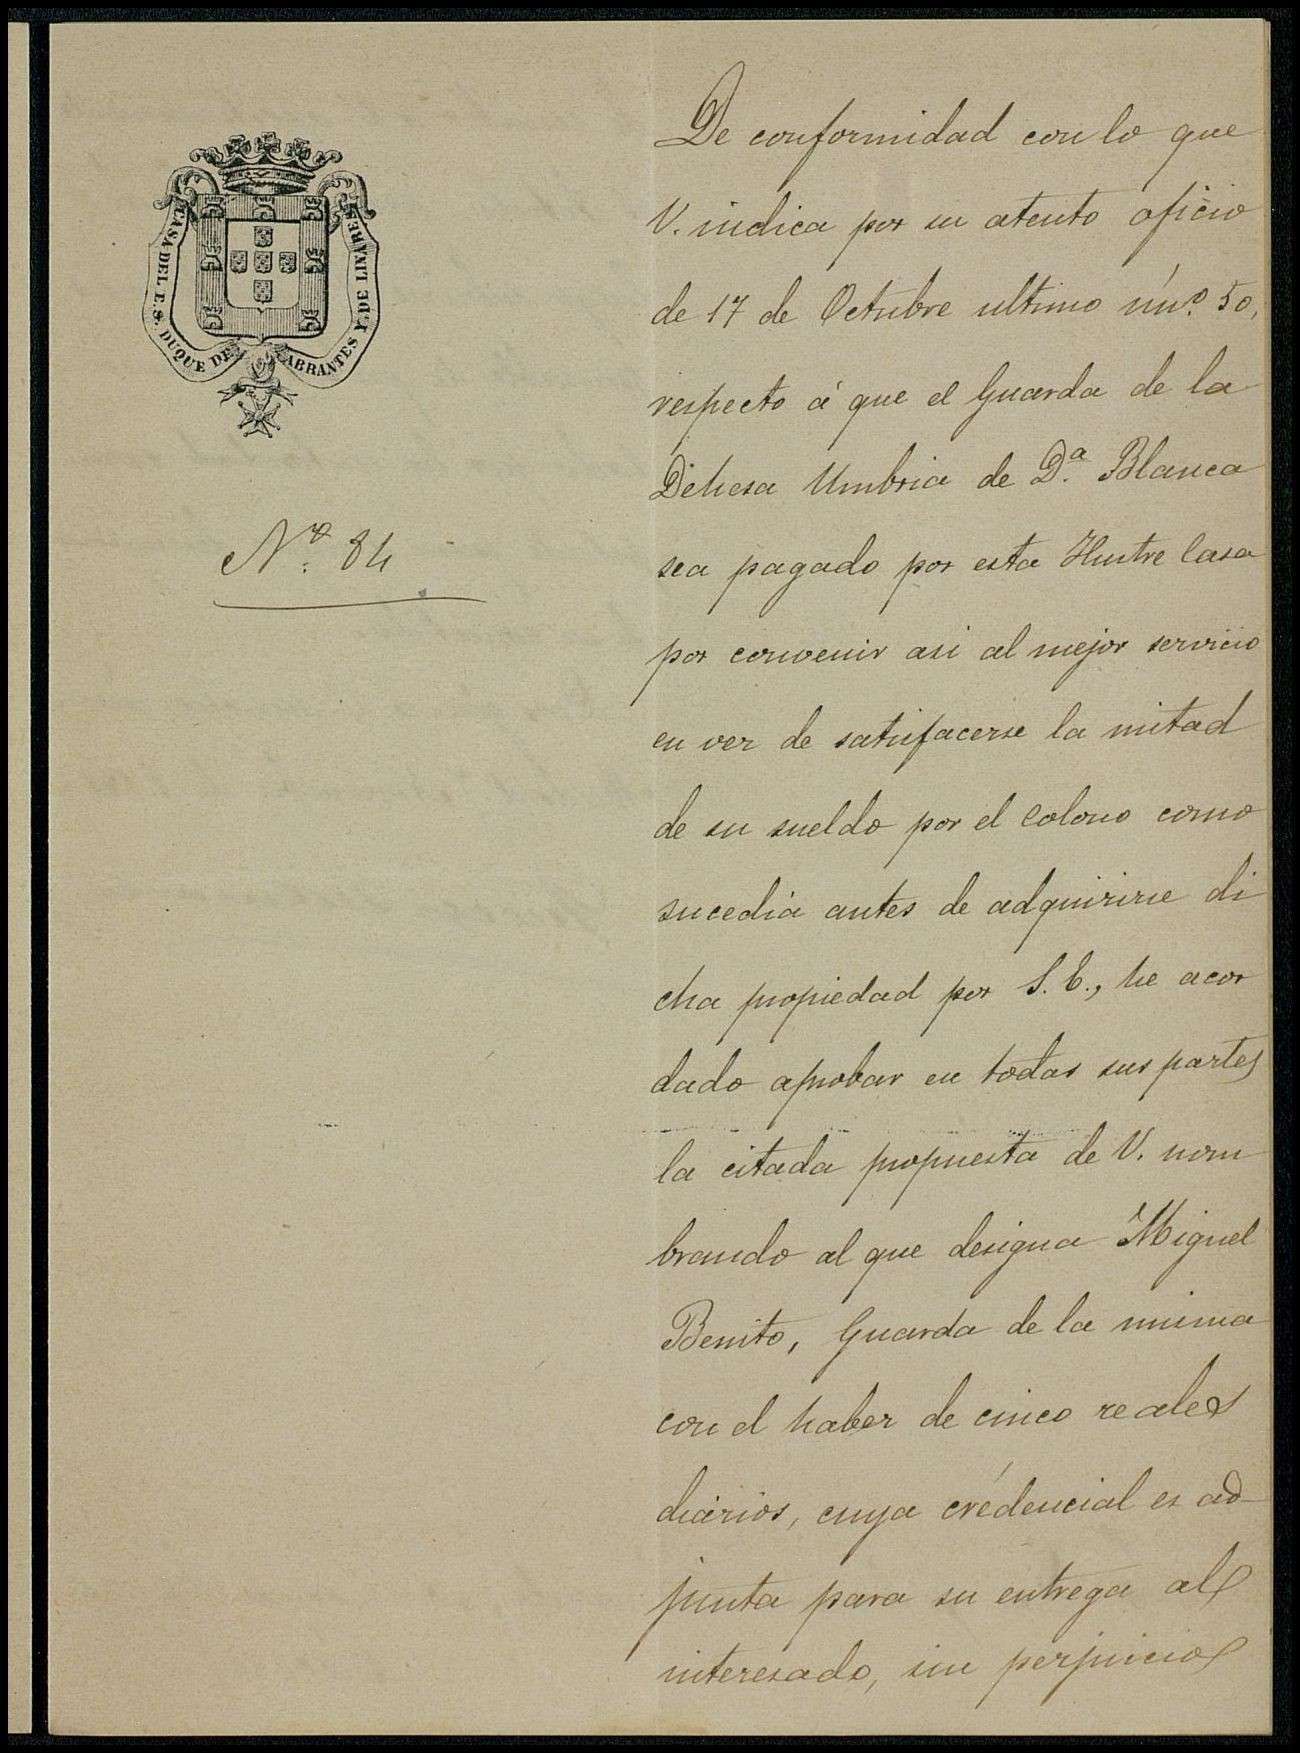 CASA DEL E.S. DUQUE DE ABRANTES Y DE LINARES
Nº. 84
De conformidad con lo que
V. indica por su atento oficio
de 17 de Octubre ultimo núnº. 50,
respecto á que el Guarda de la
Dehesa Umbria de D.ª Blanca
sea pagado por esta Ilustre Casa
por convenir asi al mejor servicio
en vez de satisfacerse la mitad
de su sueldo por el Colono como
sucedia antes de adquirirse di
cha propiedad por S. E., he acor
dado aprobar en todas sus partes
la citada propuesta de V. nom
brando al que designa Miguel
Benito, Guarda de la misma
con el haber de cinco reales
diarios, cuya crédencial es ad-
junta para su entrega al
interesado, sin perjuicio